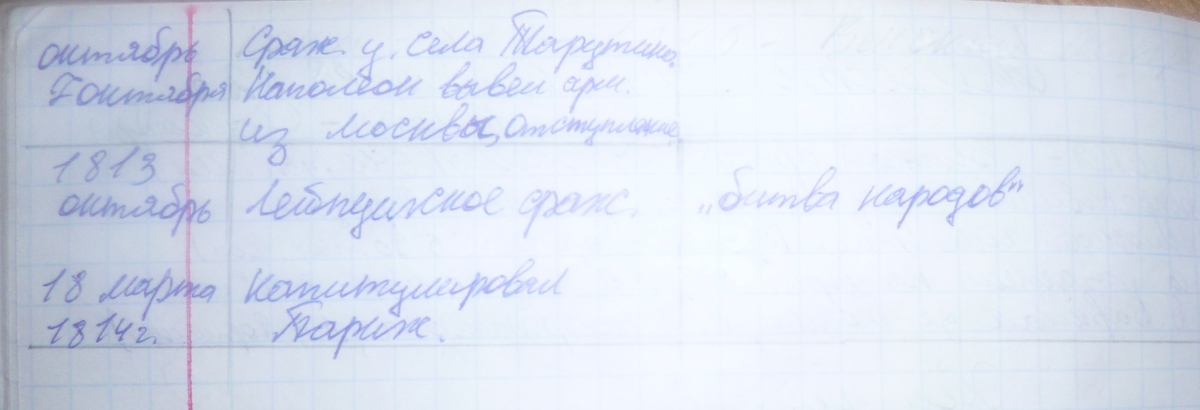 октябрь Сраж. у. села Тарутино.
7 октября Наполеон вывел арм.
из Москвы, отступление
1813
октябрь Лейпцижское сраж. „битва народов"
18 марта капитулировал
1814г. Париж.